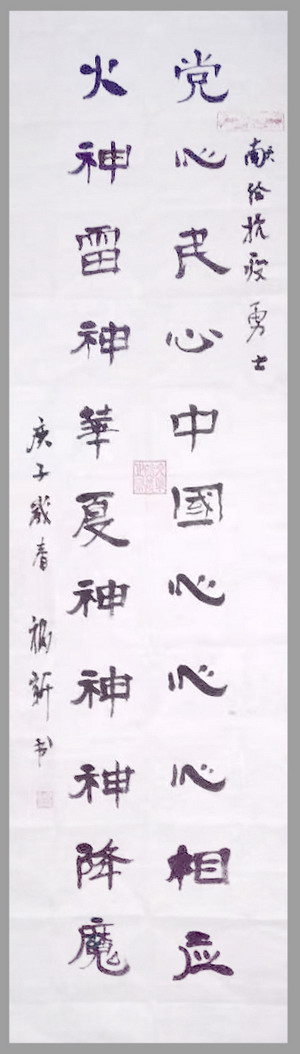 献给抗疫勇士
党心民心中國心心心相应
火神雷神華夏神神神降魔
庚子岁春 福新书